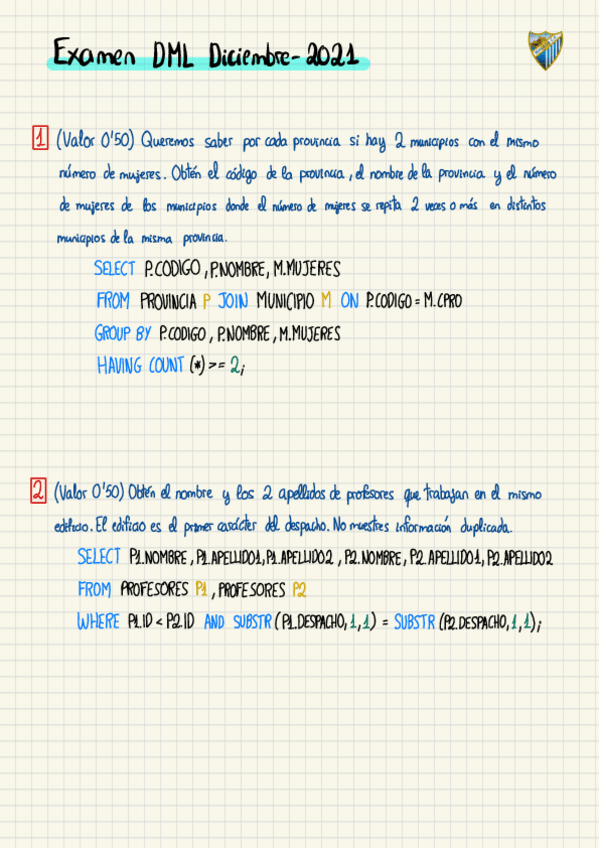 Examen DML Diciembre-2021
1 (Valor 0'50) Queremos saber por cada provincia si hay 2 municipios con el mismo
número de mujeres. Obtén el código de la provincia, el nombre de la provincia y el número
de mujeres de los municipios donde el número de mujeres se repita 2 veces o más en distintos
municipios de la misma provincia.
SELECT P.CODIGO, P.NOMBRE, M.MUJERES
FROM PROVINCIA P JOIN MUNICIPIO M ON P.CODIGO = M.CPRO
GROUP BY P.CODIGO, P.NOMBRE, M.MUJERES
HAVING COUNT (*) >= 2;
2 (Valor 0'50) Obtén el nombre y los 2 apellidos de profesores que trabajan en el mismo
edificio. El edificio es el primer carácter del despacho. No muestres información duplicada.
SELECT P1.NOMBRE, P1.APELLIDO1, P1.APELLIDO2, P2.NOMBRE, P2.APELLIDO1, P2.APELLIDO2
FROM PROFESORES P1, PROFESORES P2
WHERE P1.ID < P2.ID AND SUBSTR (P1.DESPACHO, 1, 1) = SUBSTR (P2.DESPACHO, 1, 1);